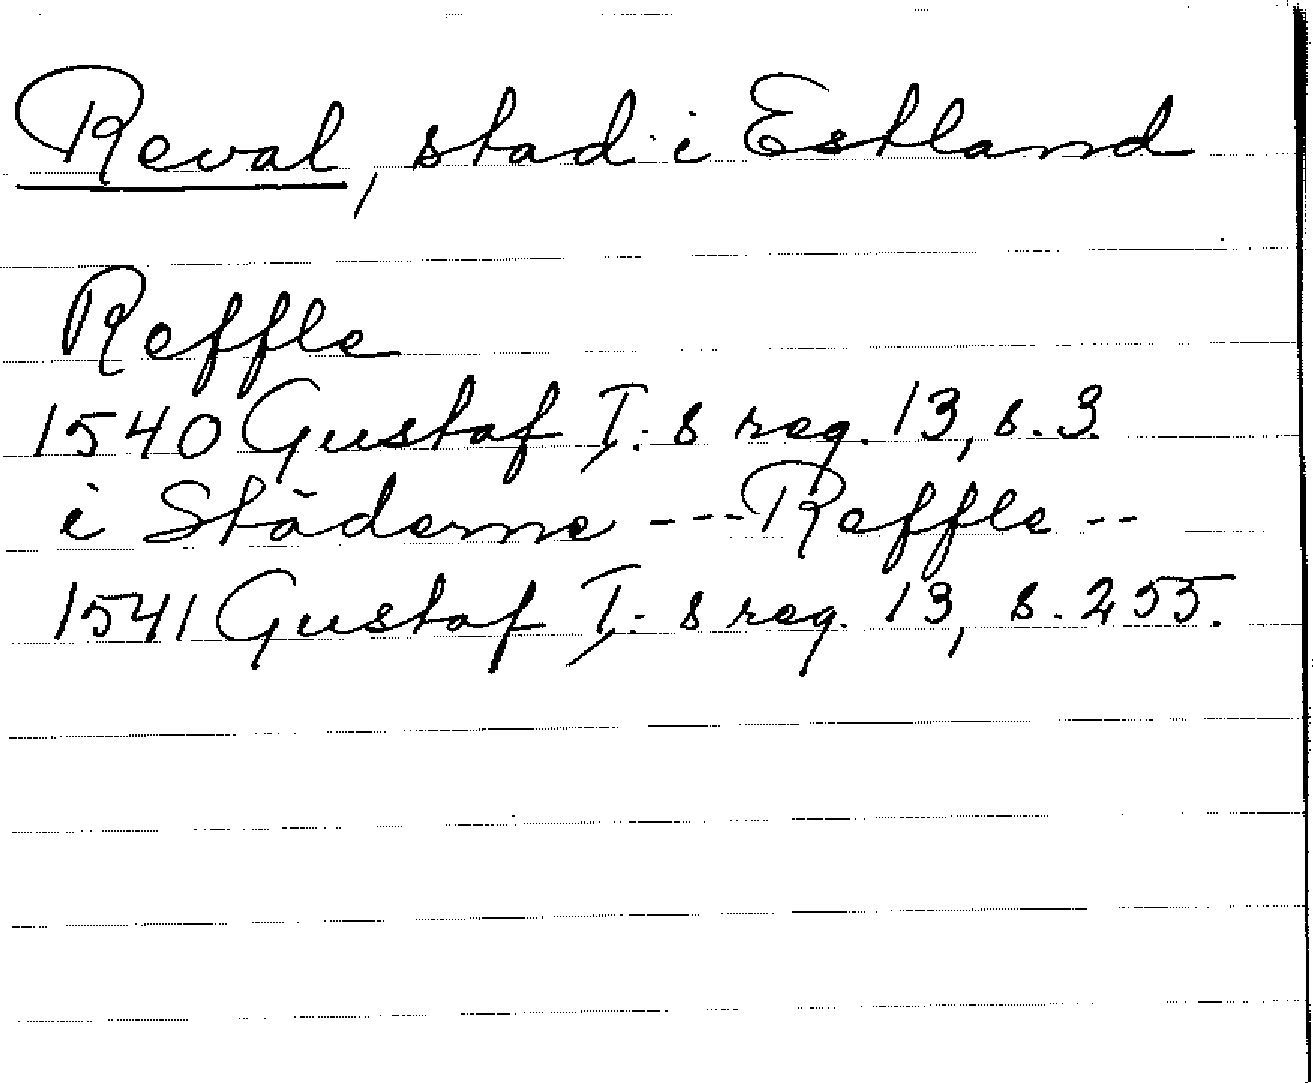 Reval, stad i Estland
Reffle
1540 Gustaf I:s reg. 13, s. 3.
i Städerne --- Reffle --
1541 Gustaf I:s reg. 13, s. 255.